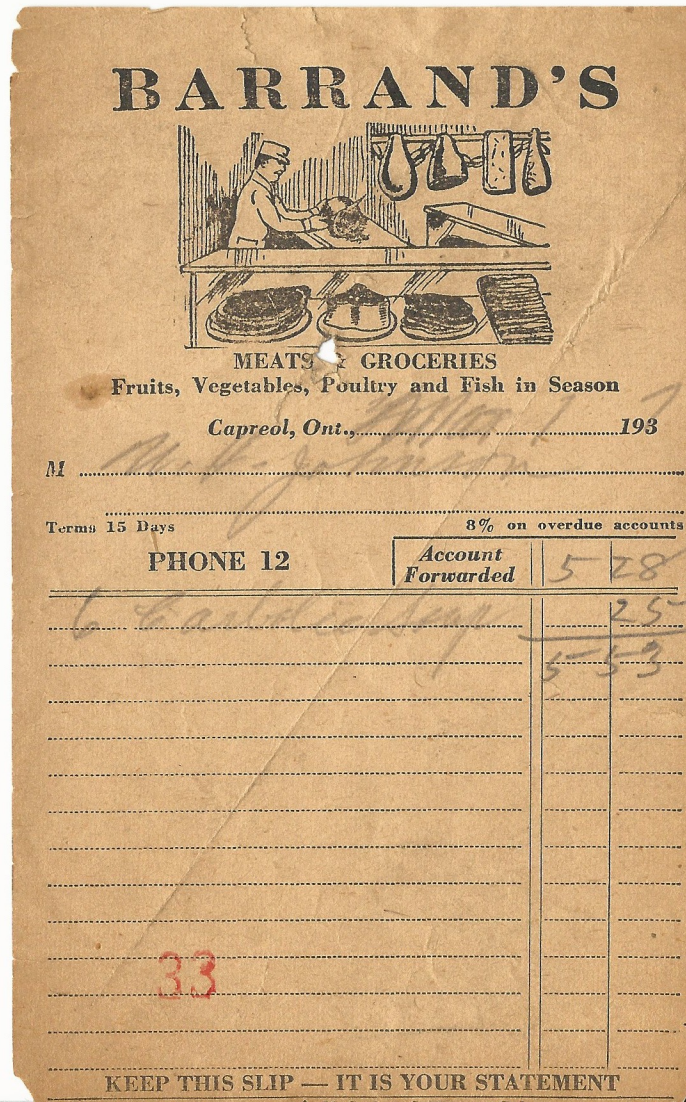 BARRAND'S
MEATS & GROCERIES
Fruits, Vegetables, Poultry and Fish in Season
Capreol, Ont., 1 193 7
M Johnson
Terms 15 Days 8% on overdue accounts
PHONE 12 Account Forwarded 5 28
6 Soap 25
5 53
33
KEEP THIS SLIP — IT IS YOUR STATEMENT